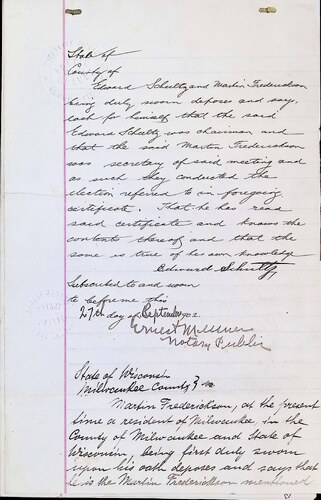 State of
County of
Edward Schultz and Martin Frederickson
being duly sworn deposes and say,
each for himself that the said
Edward Schultz was chairman and
that the said Martin Frederickson
was secretary of said meeting and
as such they conducted the
election referred to in foregoing
certificate. That he has read
said certificate and knows the
contents thereof and that the
same is true of his own knowledge
Edward Schultz,
Subscribed to and sworn
to before me this
27th day of September 1902.
Ernest
Notary Public
State of Wisconsin
Milwaukee County } ss
Martin Frederickson, at the present
time a resident of Milwaukee, in the
County of Milwaukee and State of
Wisconsin, being first duly sworn
upon his oath deposes and says that
he is the Martin Frederickson mentioned